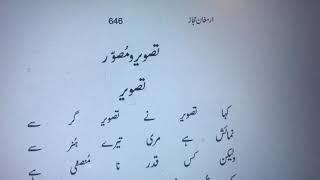 ارمغان حجاز 646
تصویر و مصوّر
تصویر
کہا تصویر نے تصویر گر سے
نمائش ہے مری تیرے ہنر سے
ولیکن کس قدر نا منصفی ہے